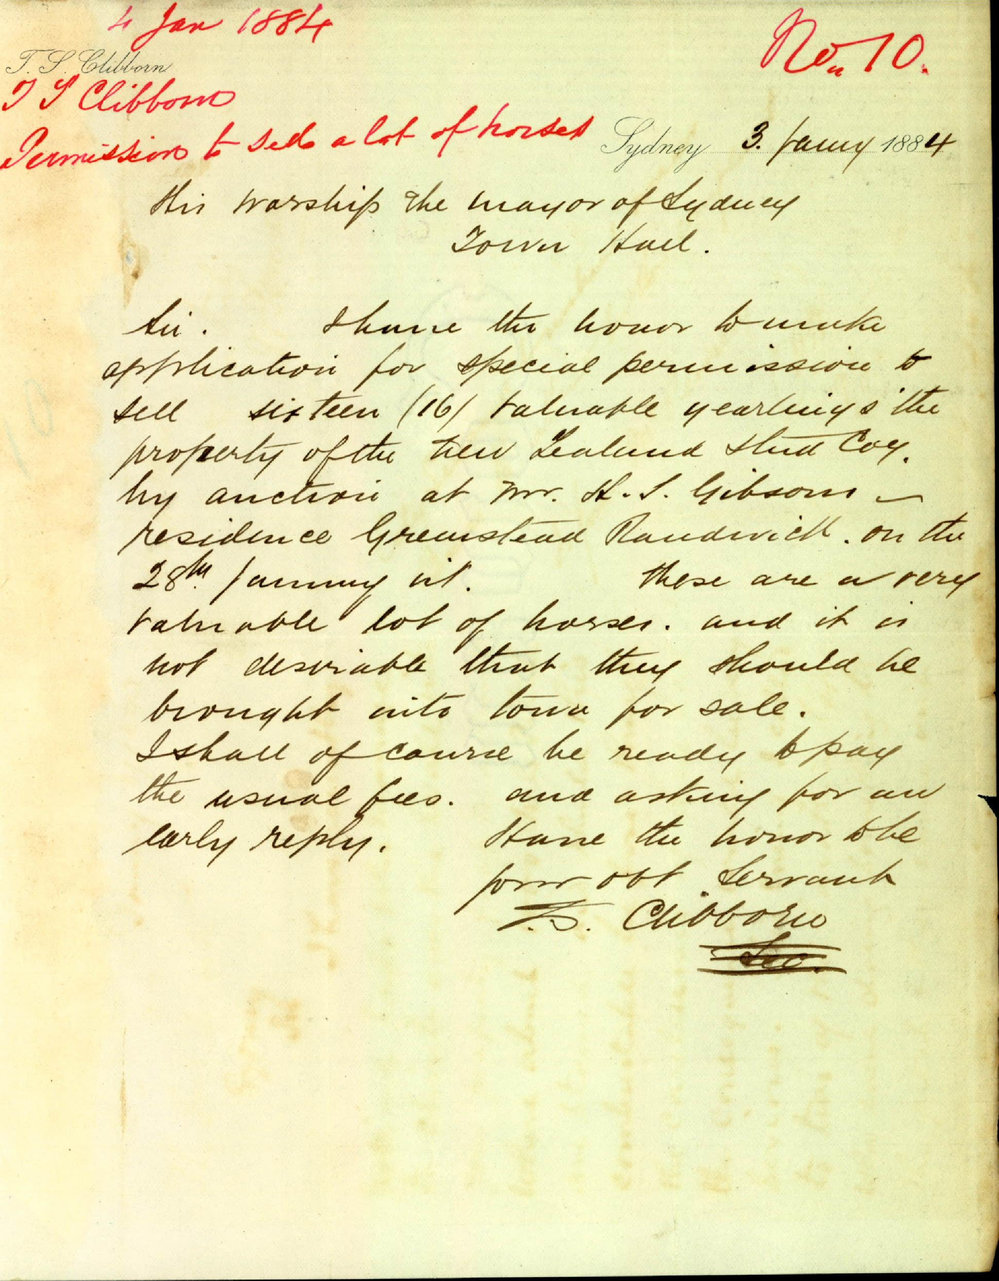 4 Jan 1884
No. 10.
T. S. Clibborn
T S Clibborn
Permission to sell a lot of horses
Sydney 3. Jany 1884
His Worship the Mayor of Sydney
Town Hall.
Sir. I have the honor to make
application for special permission to
sell sixteen (16) valuable yearlings the
property of the New Zealand Stud Coy.
by auction at Mr. H. S. Gibson
residence Greenstead Randwick. on the
28th January
these are a very
valuable lot of horses. and it is
not desirable that they should be
brought into town for sale.
I shall of course be ready to pay
the usual fees. and asking for an
early reply. Have the honor to be
your obt Servant
T.S. Clibborn
Sec.